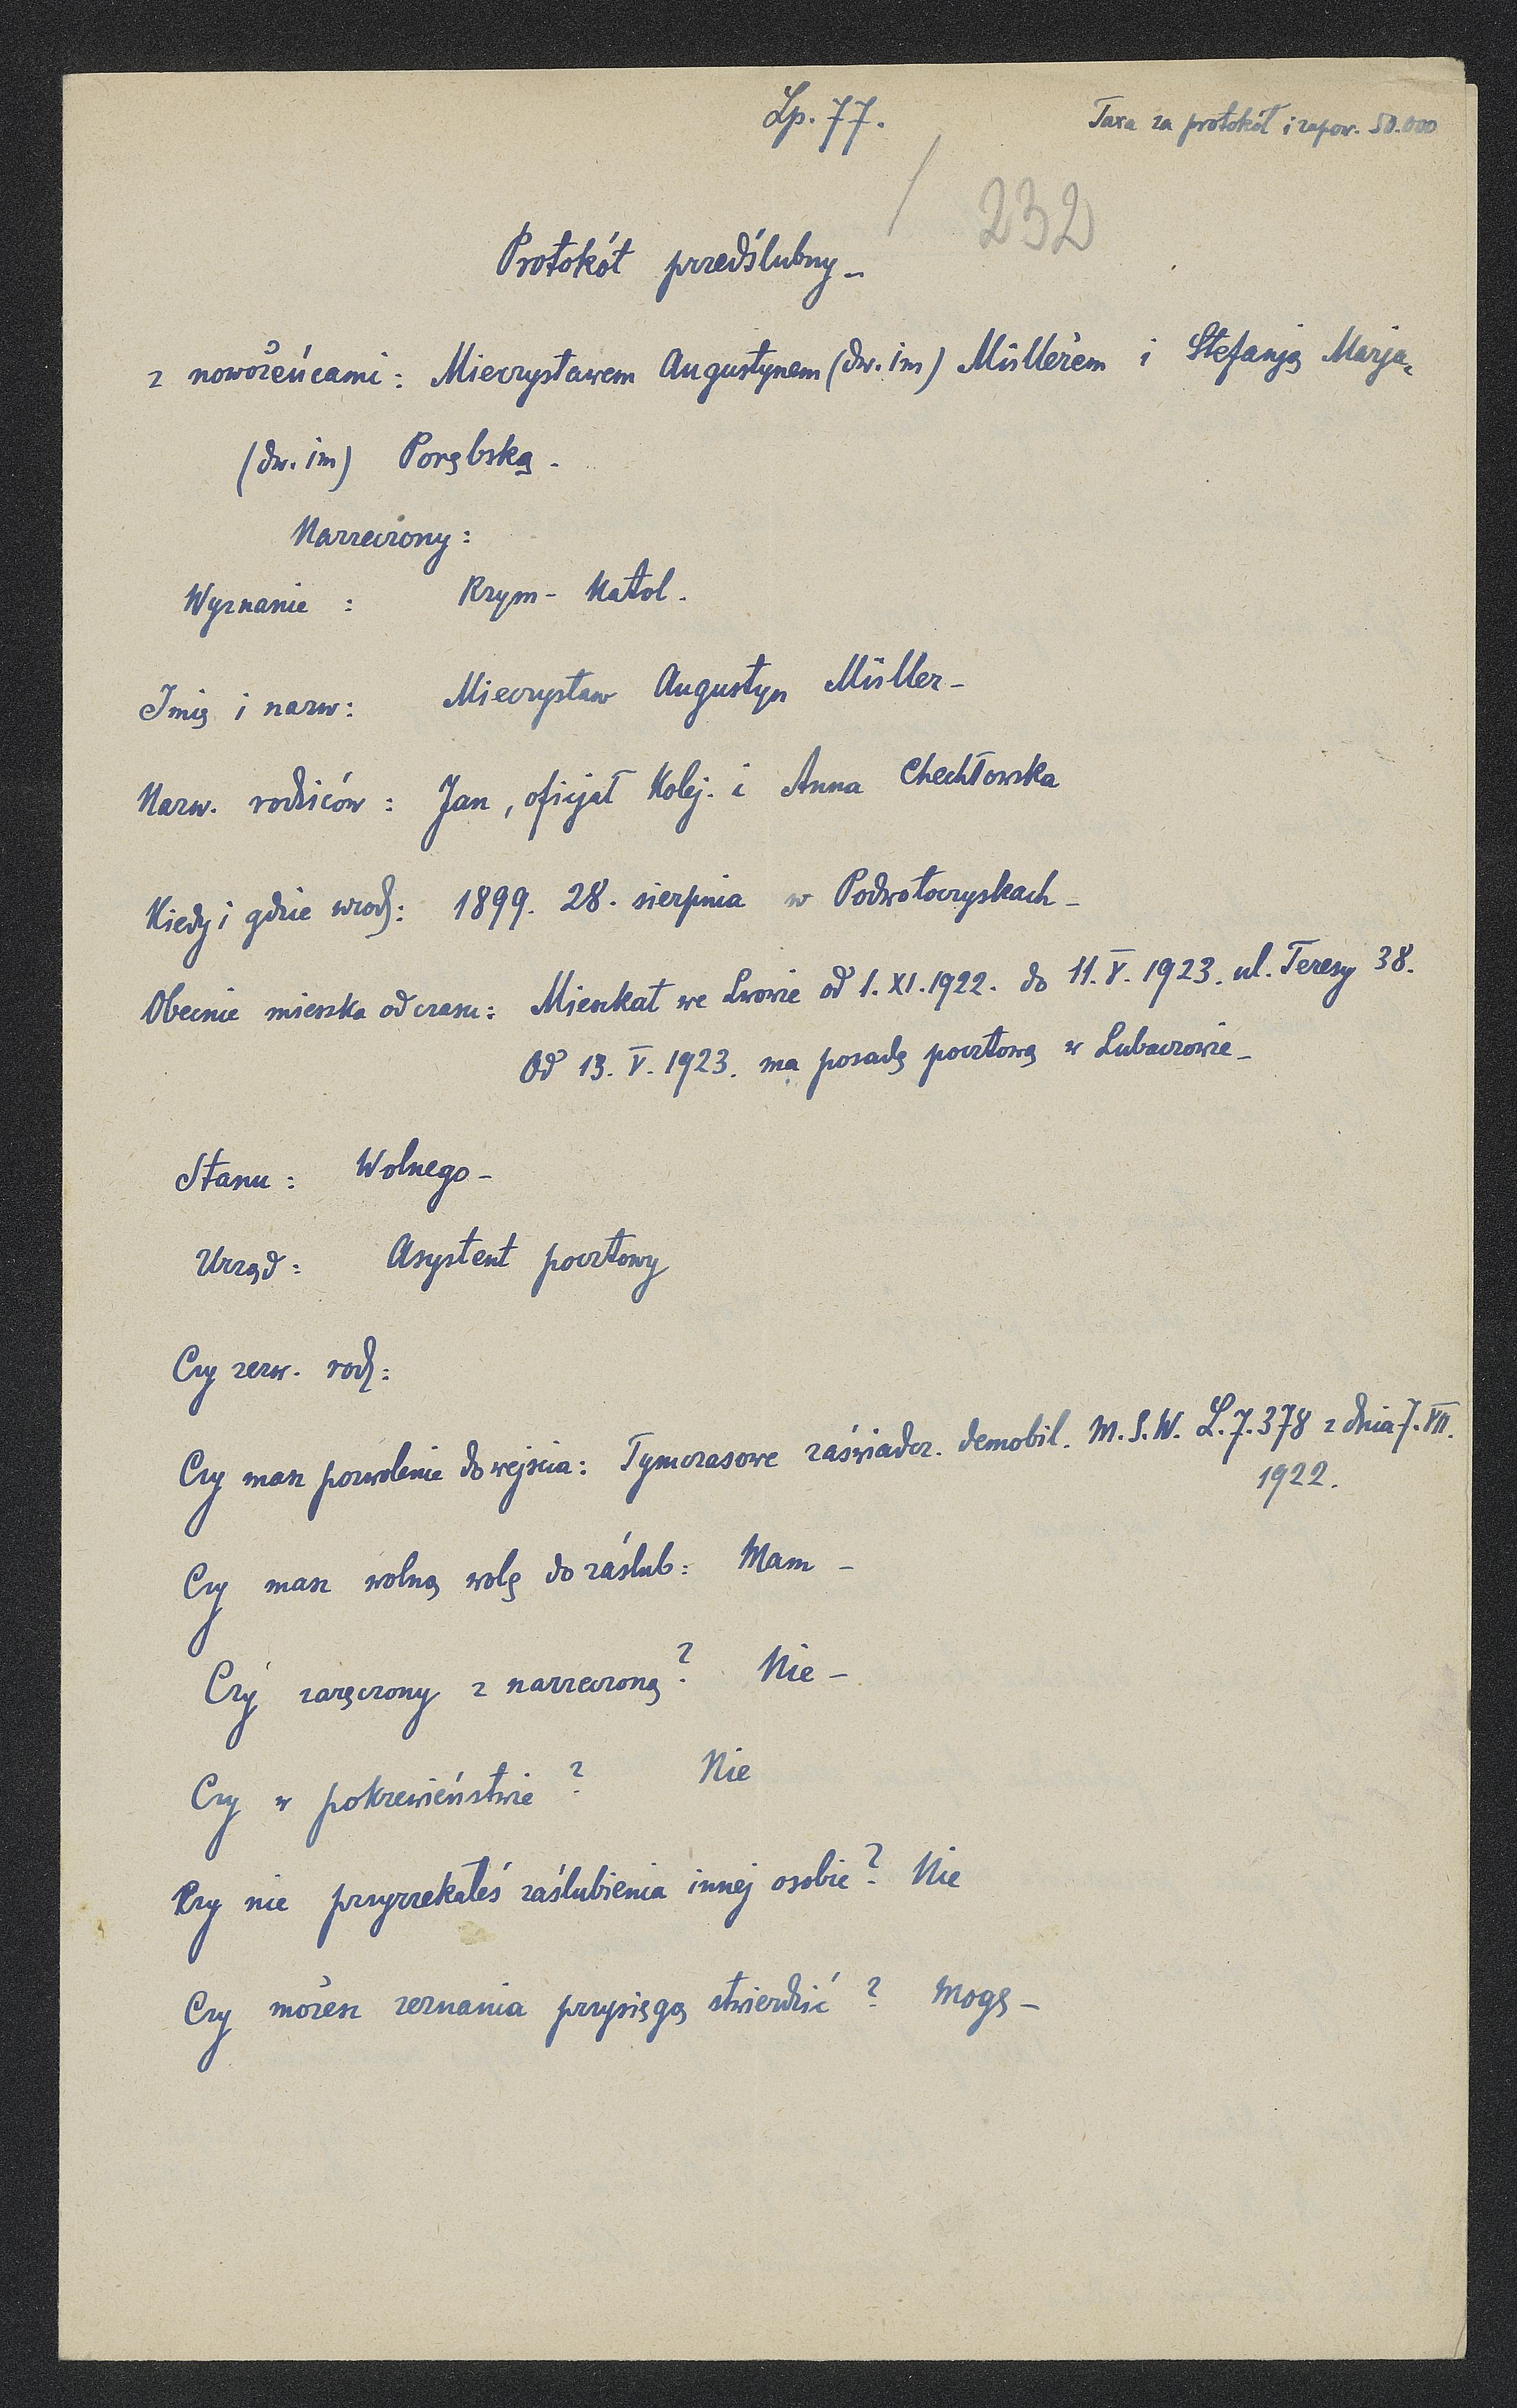 Lp. 77.
Taxa za protokół i zapow. 50.000
232
Protokół przedślubny -
z nowożeńcami: Mieczysławem Augustynem (dw. im) Müllerem i Stefanją Marją
(dw. im) Porębską.
Narzeczony:
Wyznanie : Rzym - Katol.
Imię i nazw: Mieczysław Augustyn Müller -
Nazw. rodziców : Jan, oficjał Kolej. i Anna Chechłowska
Kiedy i gdzie urodz: 1899. 28. sierpnia w Podwołoczyskach -
Obecnie mieszka od czasu: Mieszkał we Lwowie od 1. XI. 1922. do 11. V. 1923. ul. Teresy 38.
Od 13. V. 1923. ma posadę pocztową w Lubaczowie -
Stanu : Wolnego -
Urząd : Asystent pocztowy
Czy zezw. rodz:
Czy masz pozwolenie do wejścia: Tymczasowe zaświadcz. demobil. M. S. W. L. 7.378 z dnia 7. VII.
1922.
Czy masz wolną wolę do zaślub: Mam -
Czy zaręczony z narzeczoną? Nie -
Czy w pokrewieństwie ? Nie
Czy nie przyrzekałeś zaślubienia innej osobie? Nie
Czy możesz zeznania przysięgą stwierdzić ? Mogę -